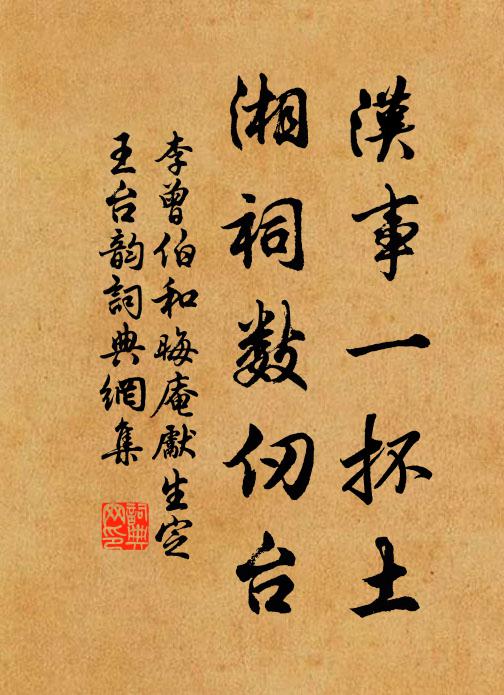 漢事一抔土
湘祠數仞台
李曾伯和晦庵獻生定
王台韵詞典網集
詞典
网印